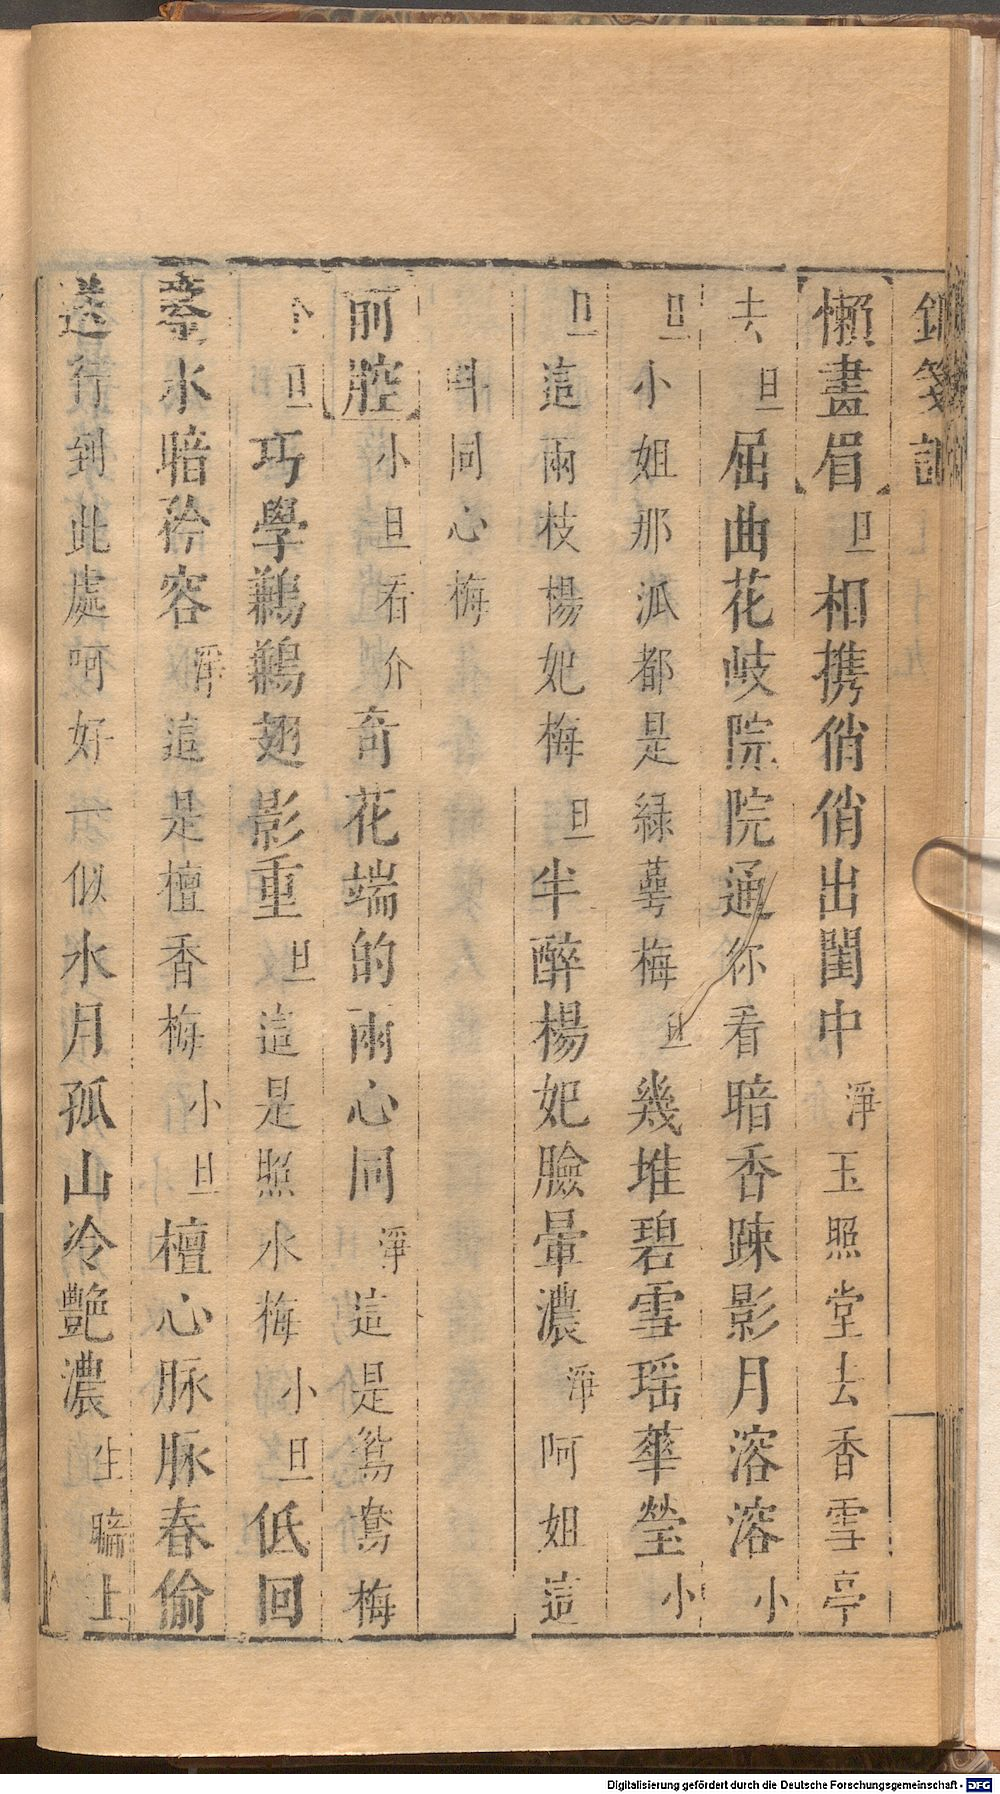 錦箋記
懶畫眉旦相携俏俏出閨中淨玉照堂去香雪亭
去旦屈曲花岐院院通你看暗香踈影月溶溶小
旦小姐那派都是緑萼梅旦幾堆碧雪瑶華瑩小
旦這兩枝楊妃梅旦半醉楊妃臉暈濃淨呵姐這
同心梅
前腔小旦看介奇花端的兩心同淨這是鴛鴦梅
旦巧學鶼鶼翅影重旦這是照水梅小旦低回
水暗矜容淨這是檀香梅小旦檀心脉脉春偷
送行到此處呵好一似水月孤山冷艷濃生暗上
Digitalisierung gefördert durch die Deutsche Forschungsgemeinschaft - DFG